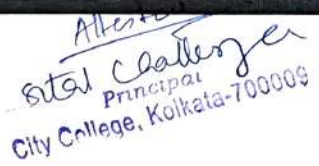 Attested
Sital Chatterjee
Principal
City College, Kolkata-700009